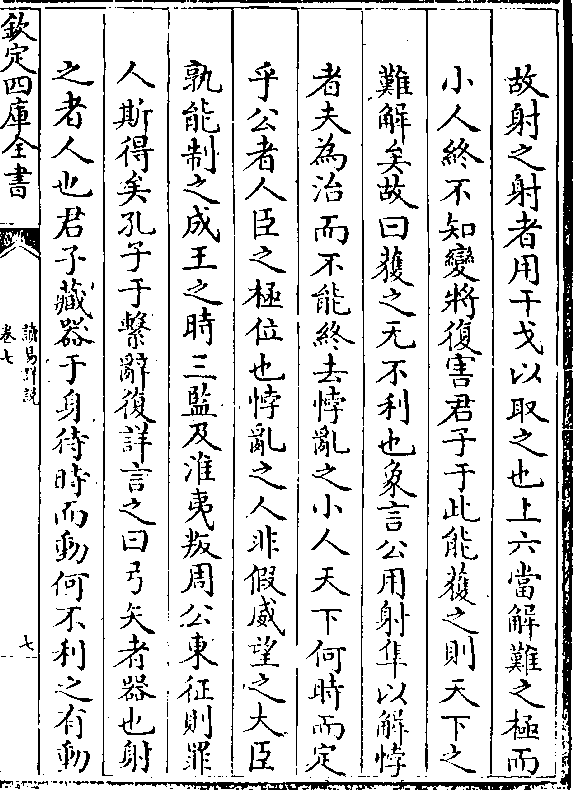 故射之射者用干戈以取之也上六當解難之極而
小人終不知變將復害君子于此能獲之則天下之
難解矣故曰獲之无不利也象言公用射隼以解悖
者夫為治而不能終去悖亂之小人天下何時而定
乎公者人臣之極位也悖亂之人非假威望之大臣
孰能制之成王之時三監及淮夷叛周公東征則罪
人斯得矣孔子于繫辭復詳言之曰弓矢者器也射
之者人也君子藏器于身待時而動何不利之有動
欽定四庫全書
讀易詳說
卷七
七